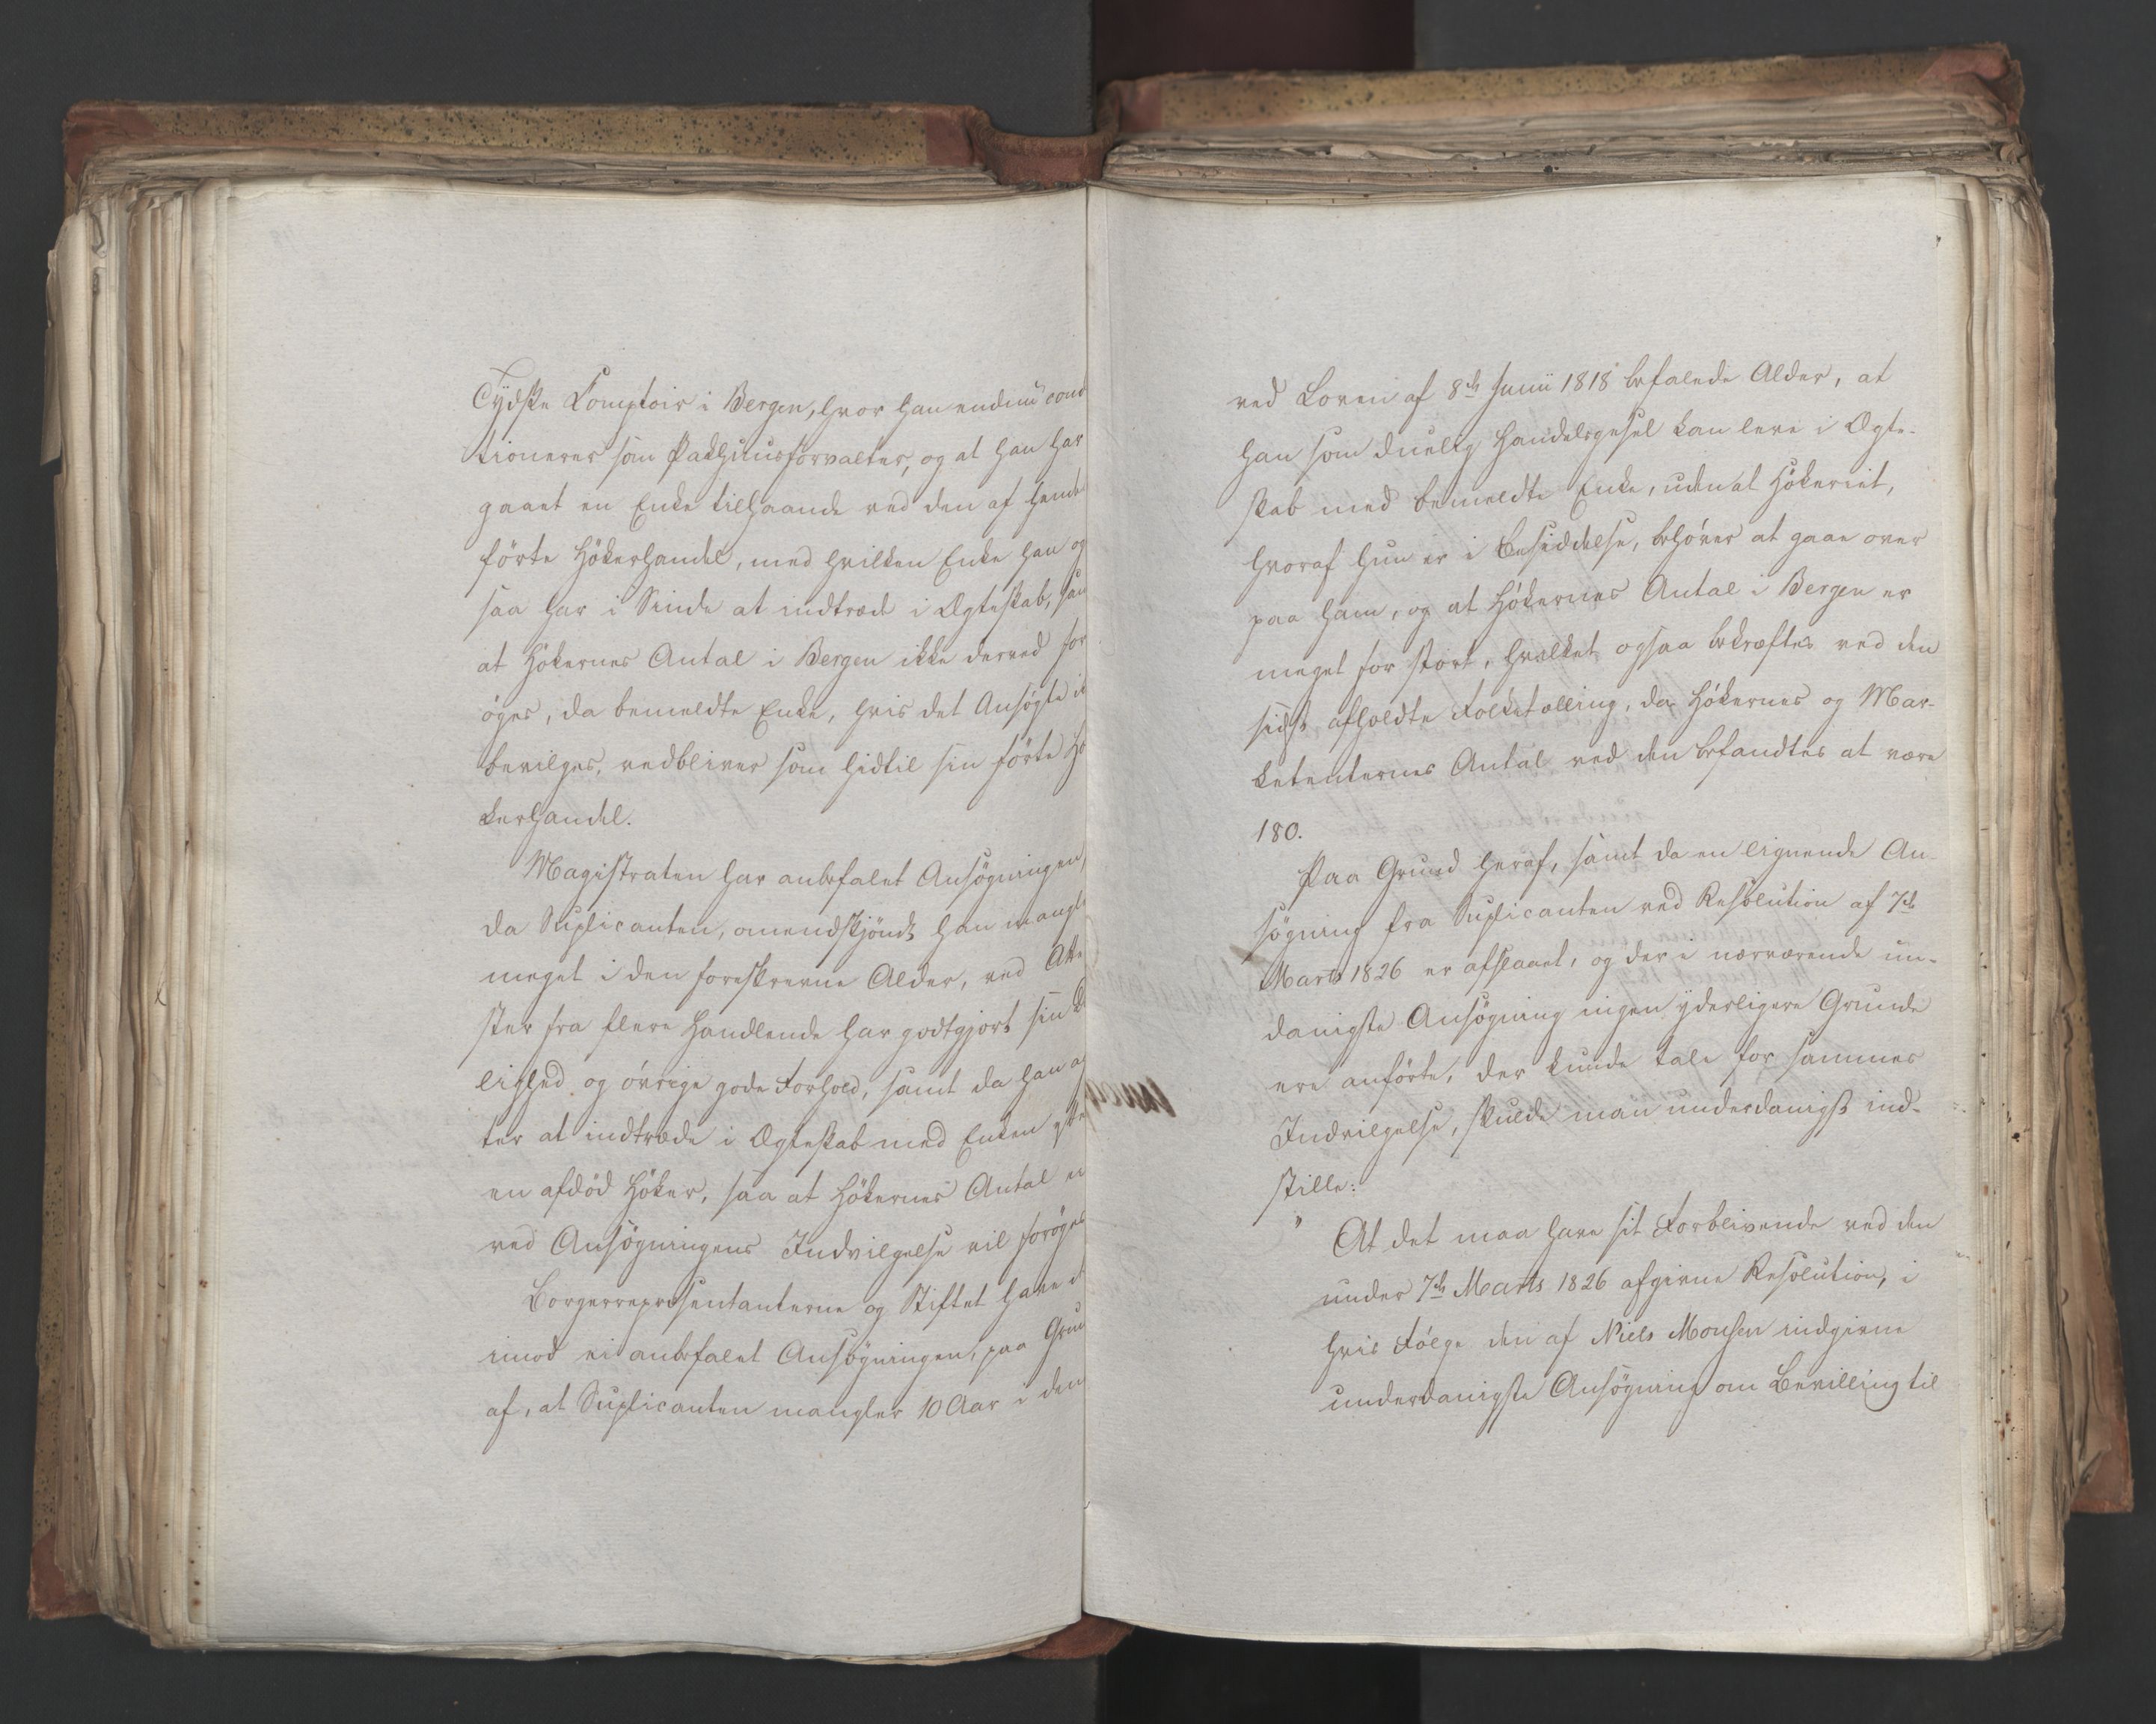 Tydske Comptoir i Bergen, hvor han endnu cond
tionerer som Pakhuusforvalter, og at han har
gaaet en Enke tilhaande ved den af hende
förte Hökerhandel, med hvilken Enke han og
saa har i Sinde at indtræde i Ægteskab, saa
at Hökernes Antal i Bergen ikke derved for
öges, da bemeldte Enke, hvis det Ansögte ik
bevilges, vedbliver som hidtil sin förte Hö
kerhandel.
Magistraten har anbefalet Ansögningen,
da Suplicanten, omendskjöndt han mangle
meget i den foreskrevne Alder, ved Atte
ster fra flere Handlende har godtgjort sin D
lighed og övrige gode Forhold, samt da han ag
ter at indtræde i Ægteskab med Enken efte
en afdöd Höker, saa at Hökernes Antal ei
ved Ansögningens Indvilgelse vil foröges
Borgerrepræsentanterne og Stiftet have d
imod ei anbefalet Ansögningen, paa Grun
af, at Suplicanten mangler 10 Aar i den
ved Loven af 8de Junii 1818 befalede Alder, at
han som duelig Handelsgesel kan leve i Ægte-
skab med bemeldte Enke, uden at Hökeriet,
hvoraf hun er i Besiddelse, behöver at gaae over
paa ham, og at Hökernes Antal i Bergen er
meget for stort, hvilket ogsaa bekræftes ved den
sidst afholdte Folketælling, da Hökernes og Mar-
ketenternes Antal ved den befandtes at være
180.
Paa Grund heraf, samt da en lignende An-
sögning fra Suplicanten ved Resolution af 7de
Marts 1826 er afslaaet, og der i nærværende un-
danigste Ansögning ingen yderligere Grunde
ere anförte, der kunde tale for sammes
Indvilgelse, skulde man underdanigst ind-
stille:
At det maa have sit Forblivende ved den
under 7de Marts 1826 afgivne Resolution, i
hvis Fölge den af Niels Monsen indgivne
underdanigste Ansögning om Bevilling til